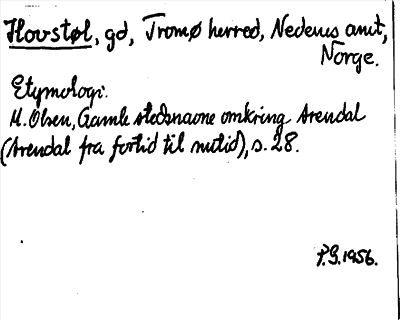 Hovstøl, gd, Tromø herred, Nedenes amt,
Norge.
Etymologi:
M. Olsen, Gamle stedsnavne omkring Arendal
(Arendal fra fortid til nutid), s. 28.
P.G. 1956.